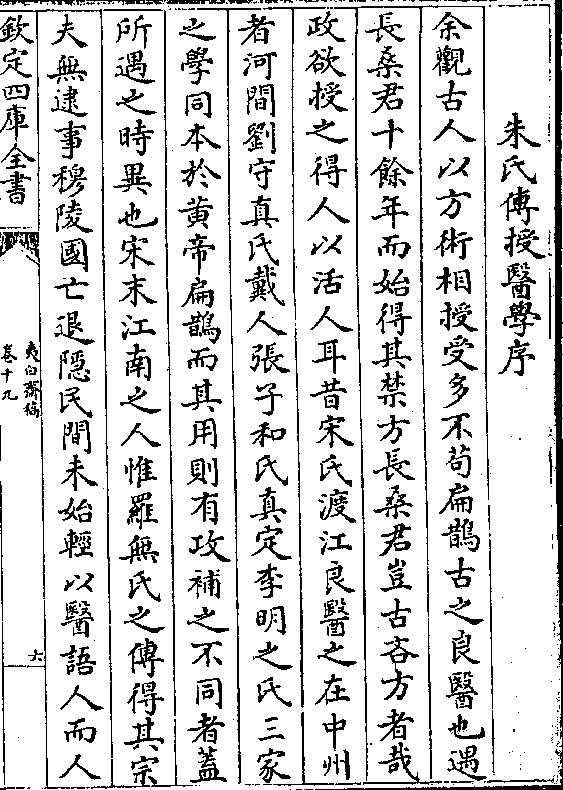 朱氏傳授醫學序
余觀古人以方術相授受多不苟扁鵲古之良醫也遇
長桑君十餘年而始得其禁方長桑君豈古吝方者哉
政欲授之得人以活人耳昔宋氏渡江良醫之在中州
者河間劉守真氏戴人張子和氏真定李明之氏三家
之學同本於黄帝扁鵲而其用則有攻補之不同者蓋
所遇之時異也宋末江南之人惟羅無氏之傳得其宗
夫無逮事穆陵國亡退隠民間未始輕以醫語人而人
欽定四庫全書
夷白齋稿
卷十九
六